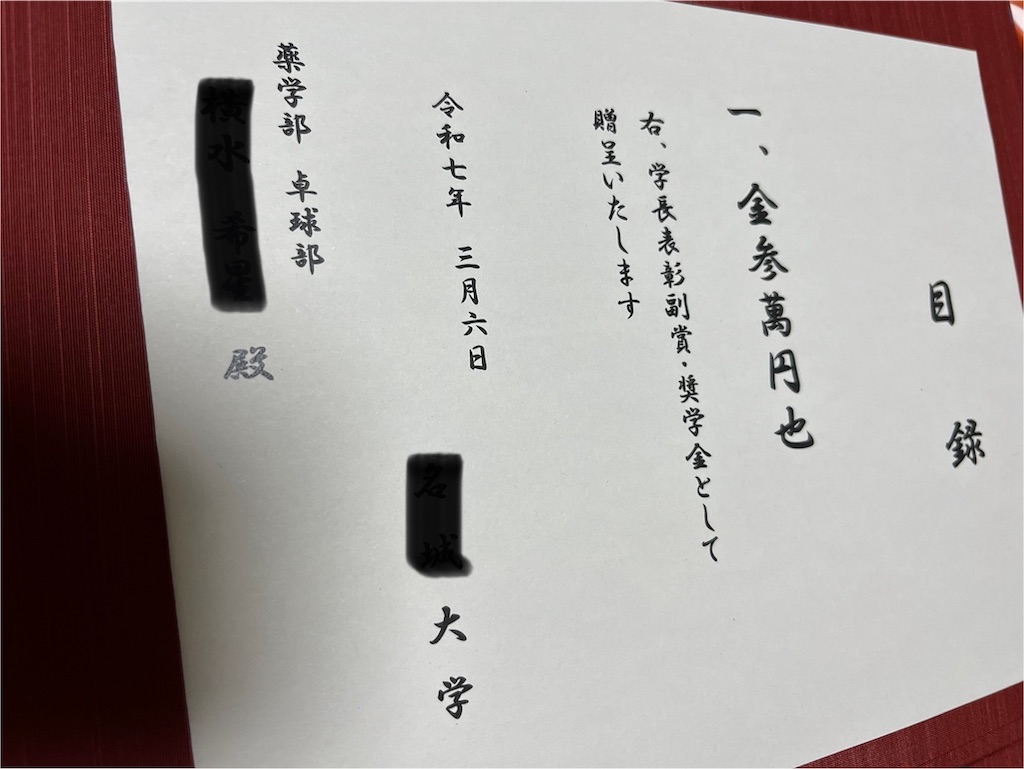 目録
一、金参萬円也
右、学長表彰副賞・奨学金として
贈呈いたします
令和七年 三月六日
大学
薬学部 卓球部
殿